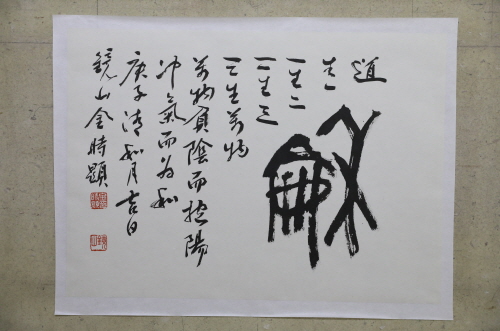 龢
道
生一
一生二
二生三
三生萬物
萬物負陰而抱陽
冲氣而為和
庚子清和月吉日
鏡山金時題